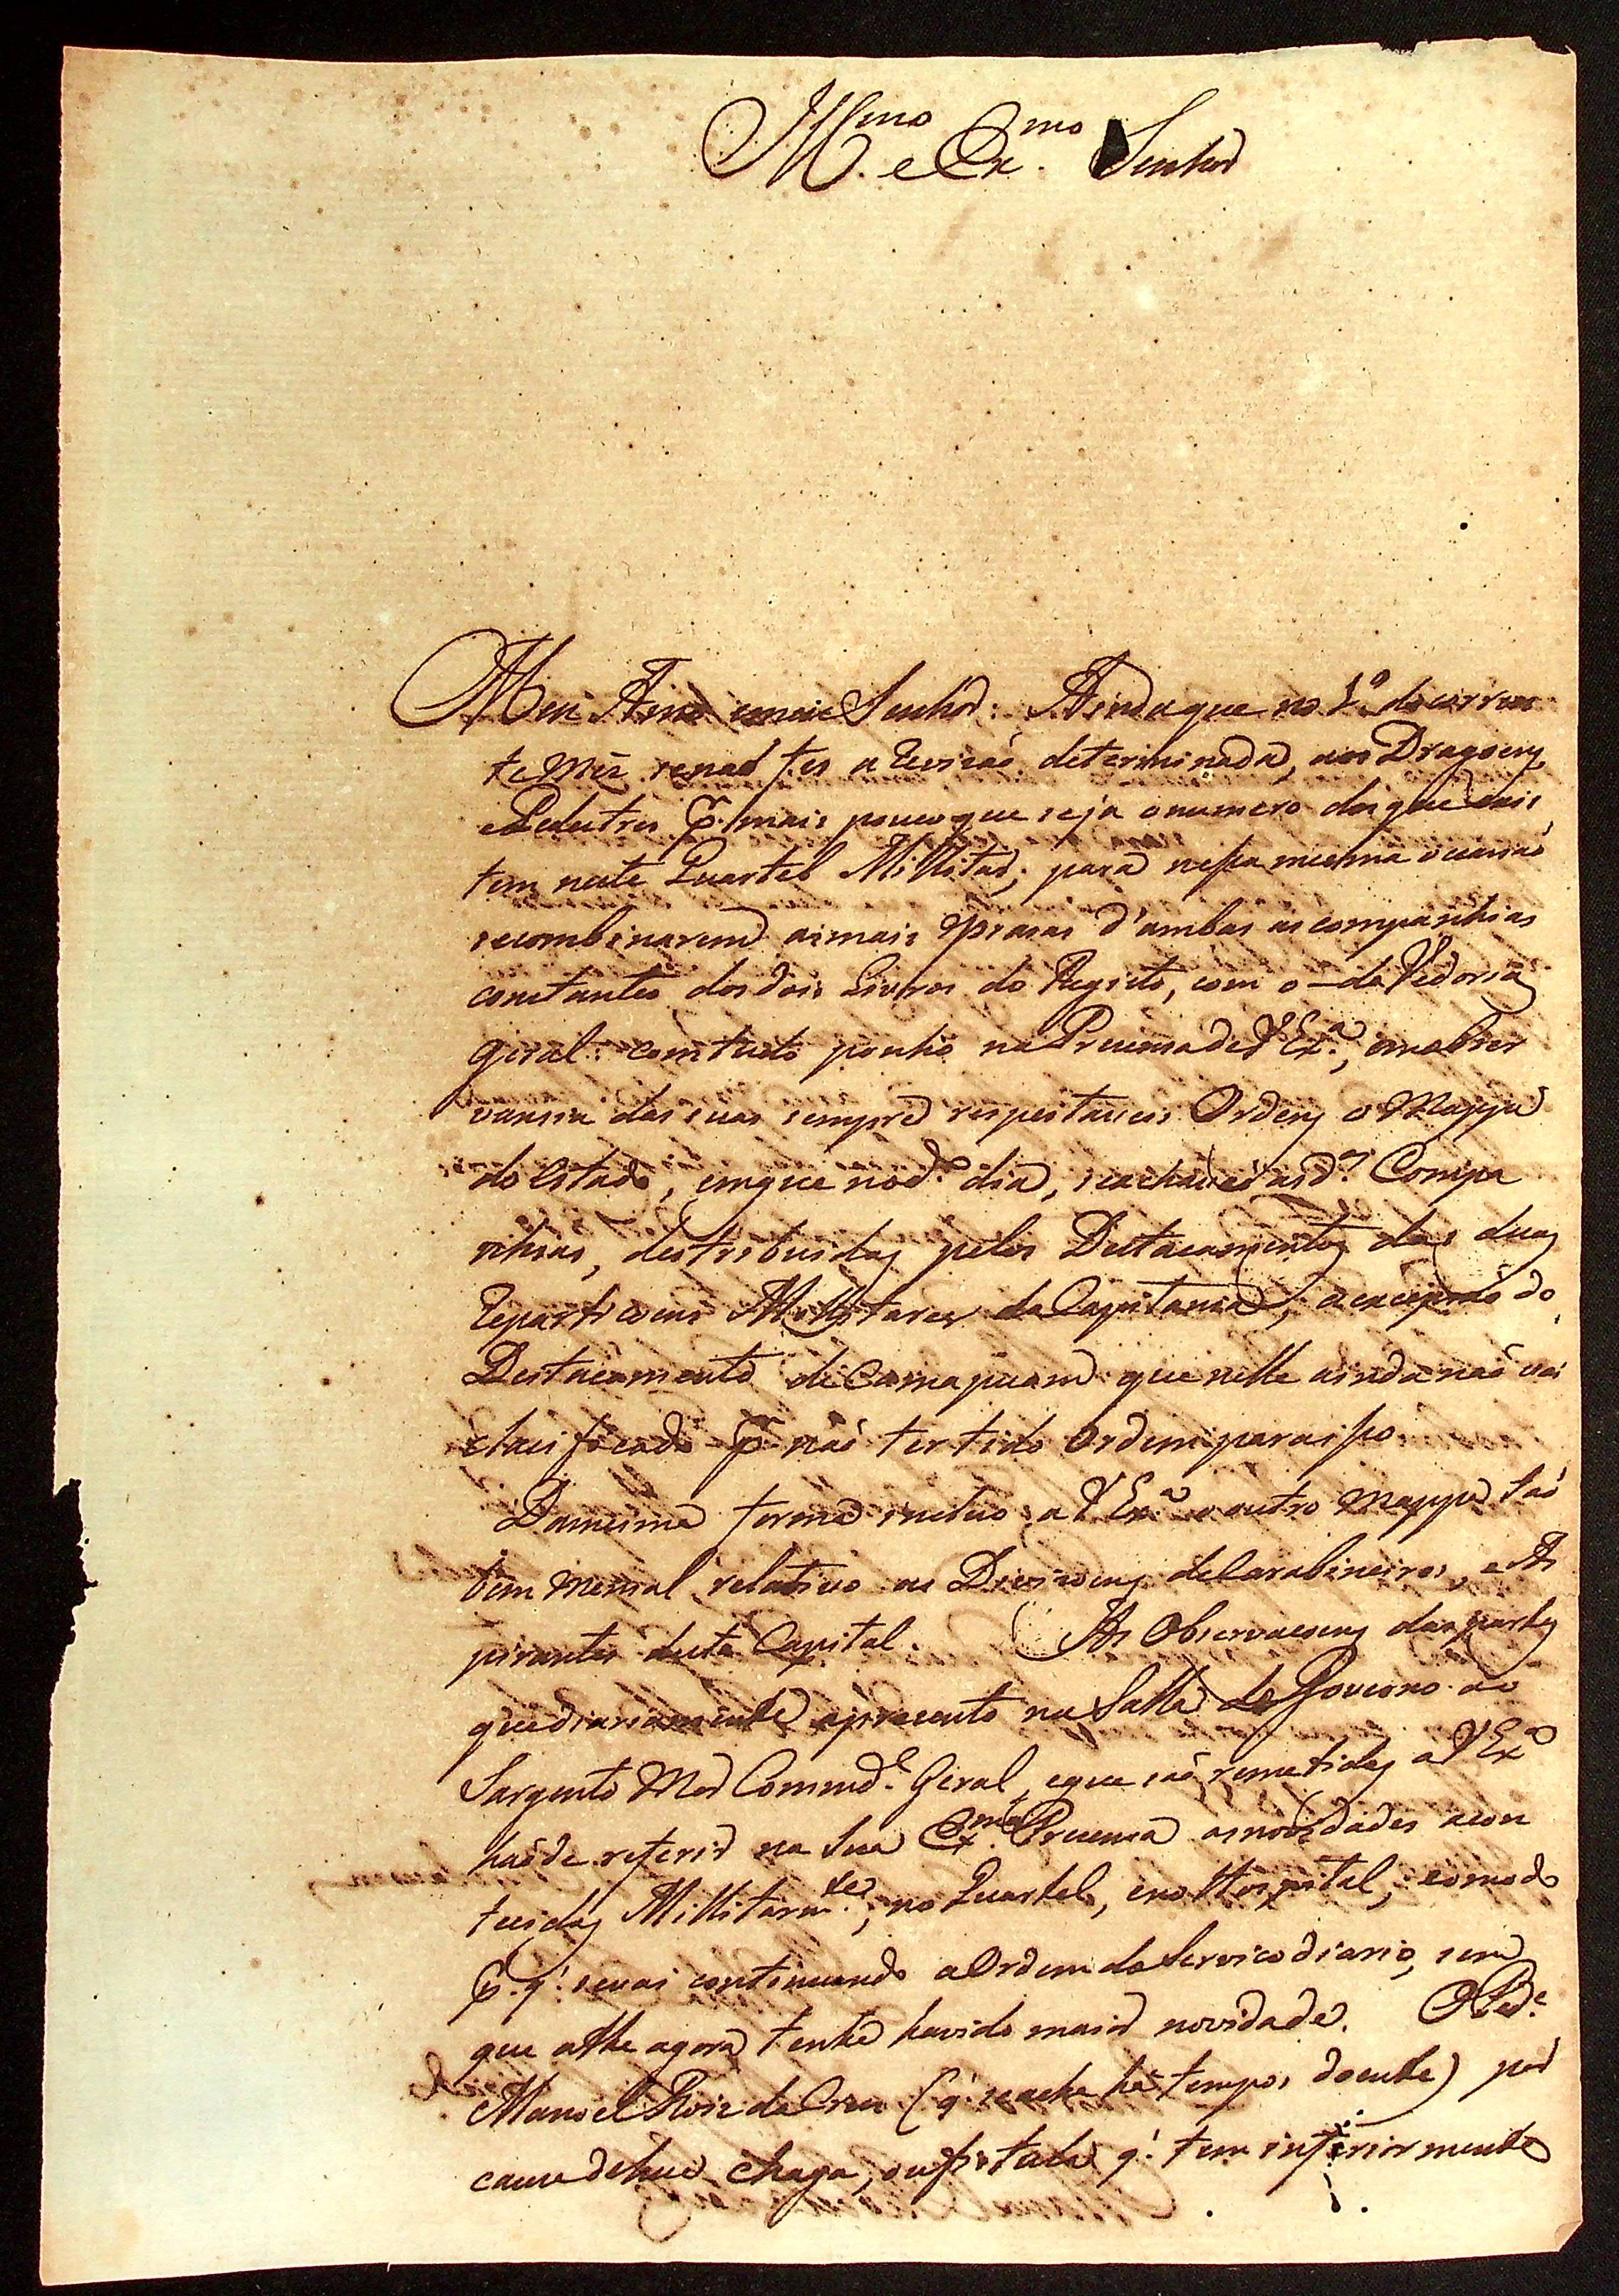 Illmo. e Exmo. Senhor
Meu Amo e meu Senhor: Ainda que no 1º do corren
te Mez senaõ fes a Revizaõ determinada, aos Dragoens,
e Pedestres p.r mais pouco que seja o numero dos que exis
tem neste Quartel Millitar; para nessa mesma ocaziaõ
se combinarem as mais Prasas d'ambas as companhias
constantes dos dois Livros do Registo, com o - da Vedoria
Geral: com tudo ponho na Prezensa de V Ex.ª, em obser
vansia das suas sempre respeitaveis Ordens o Mappa
do Estado, em que no d.º dia, se achavaõ as d.as Compa
nhias, destribuidas pelos Destacamentos das duas
Reparticoens Millitares da Capitania, a excepsaõ do
Destacamento de Camapuam que nelle ainda naõ vai
clacificado p.r naõ ter tido Ordem para isso.
Da mesma forma incluo a V Ex.ª o outro Mappa taõ
bem Mensal relativo as Divizoens de Carabineiros, e As
pirantes desta Capital. As Observacoens das partes
que diariamente aprezento na Salla do Governo ao
Sargento Mor Commd.e Geral, e que saõ remetidas a V Ex.ª
haõ de referir na Sua Ex.ma Prezensa as novidades acon
tecidas Millitarm.te, no Quartel, e no Hospital, e o modo
p.r q' se vai continuando a Ordem do Servico diario, sem
que athe agora tenha havido maior novidade. O Ped.e
Manoel Roiz da Crus (q' se acha há tempos doente) por
cauza de hua chaga, ou fistula q' tem interiormente